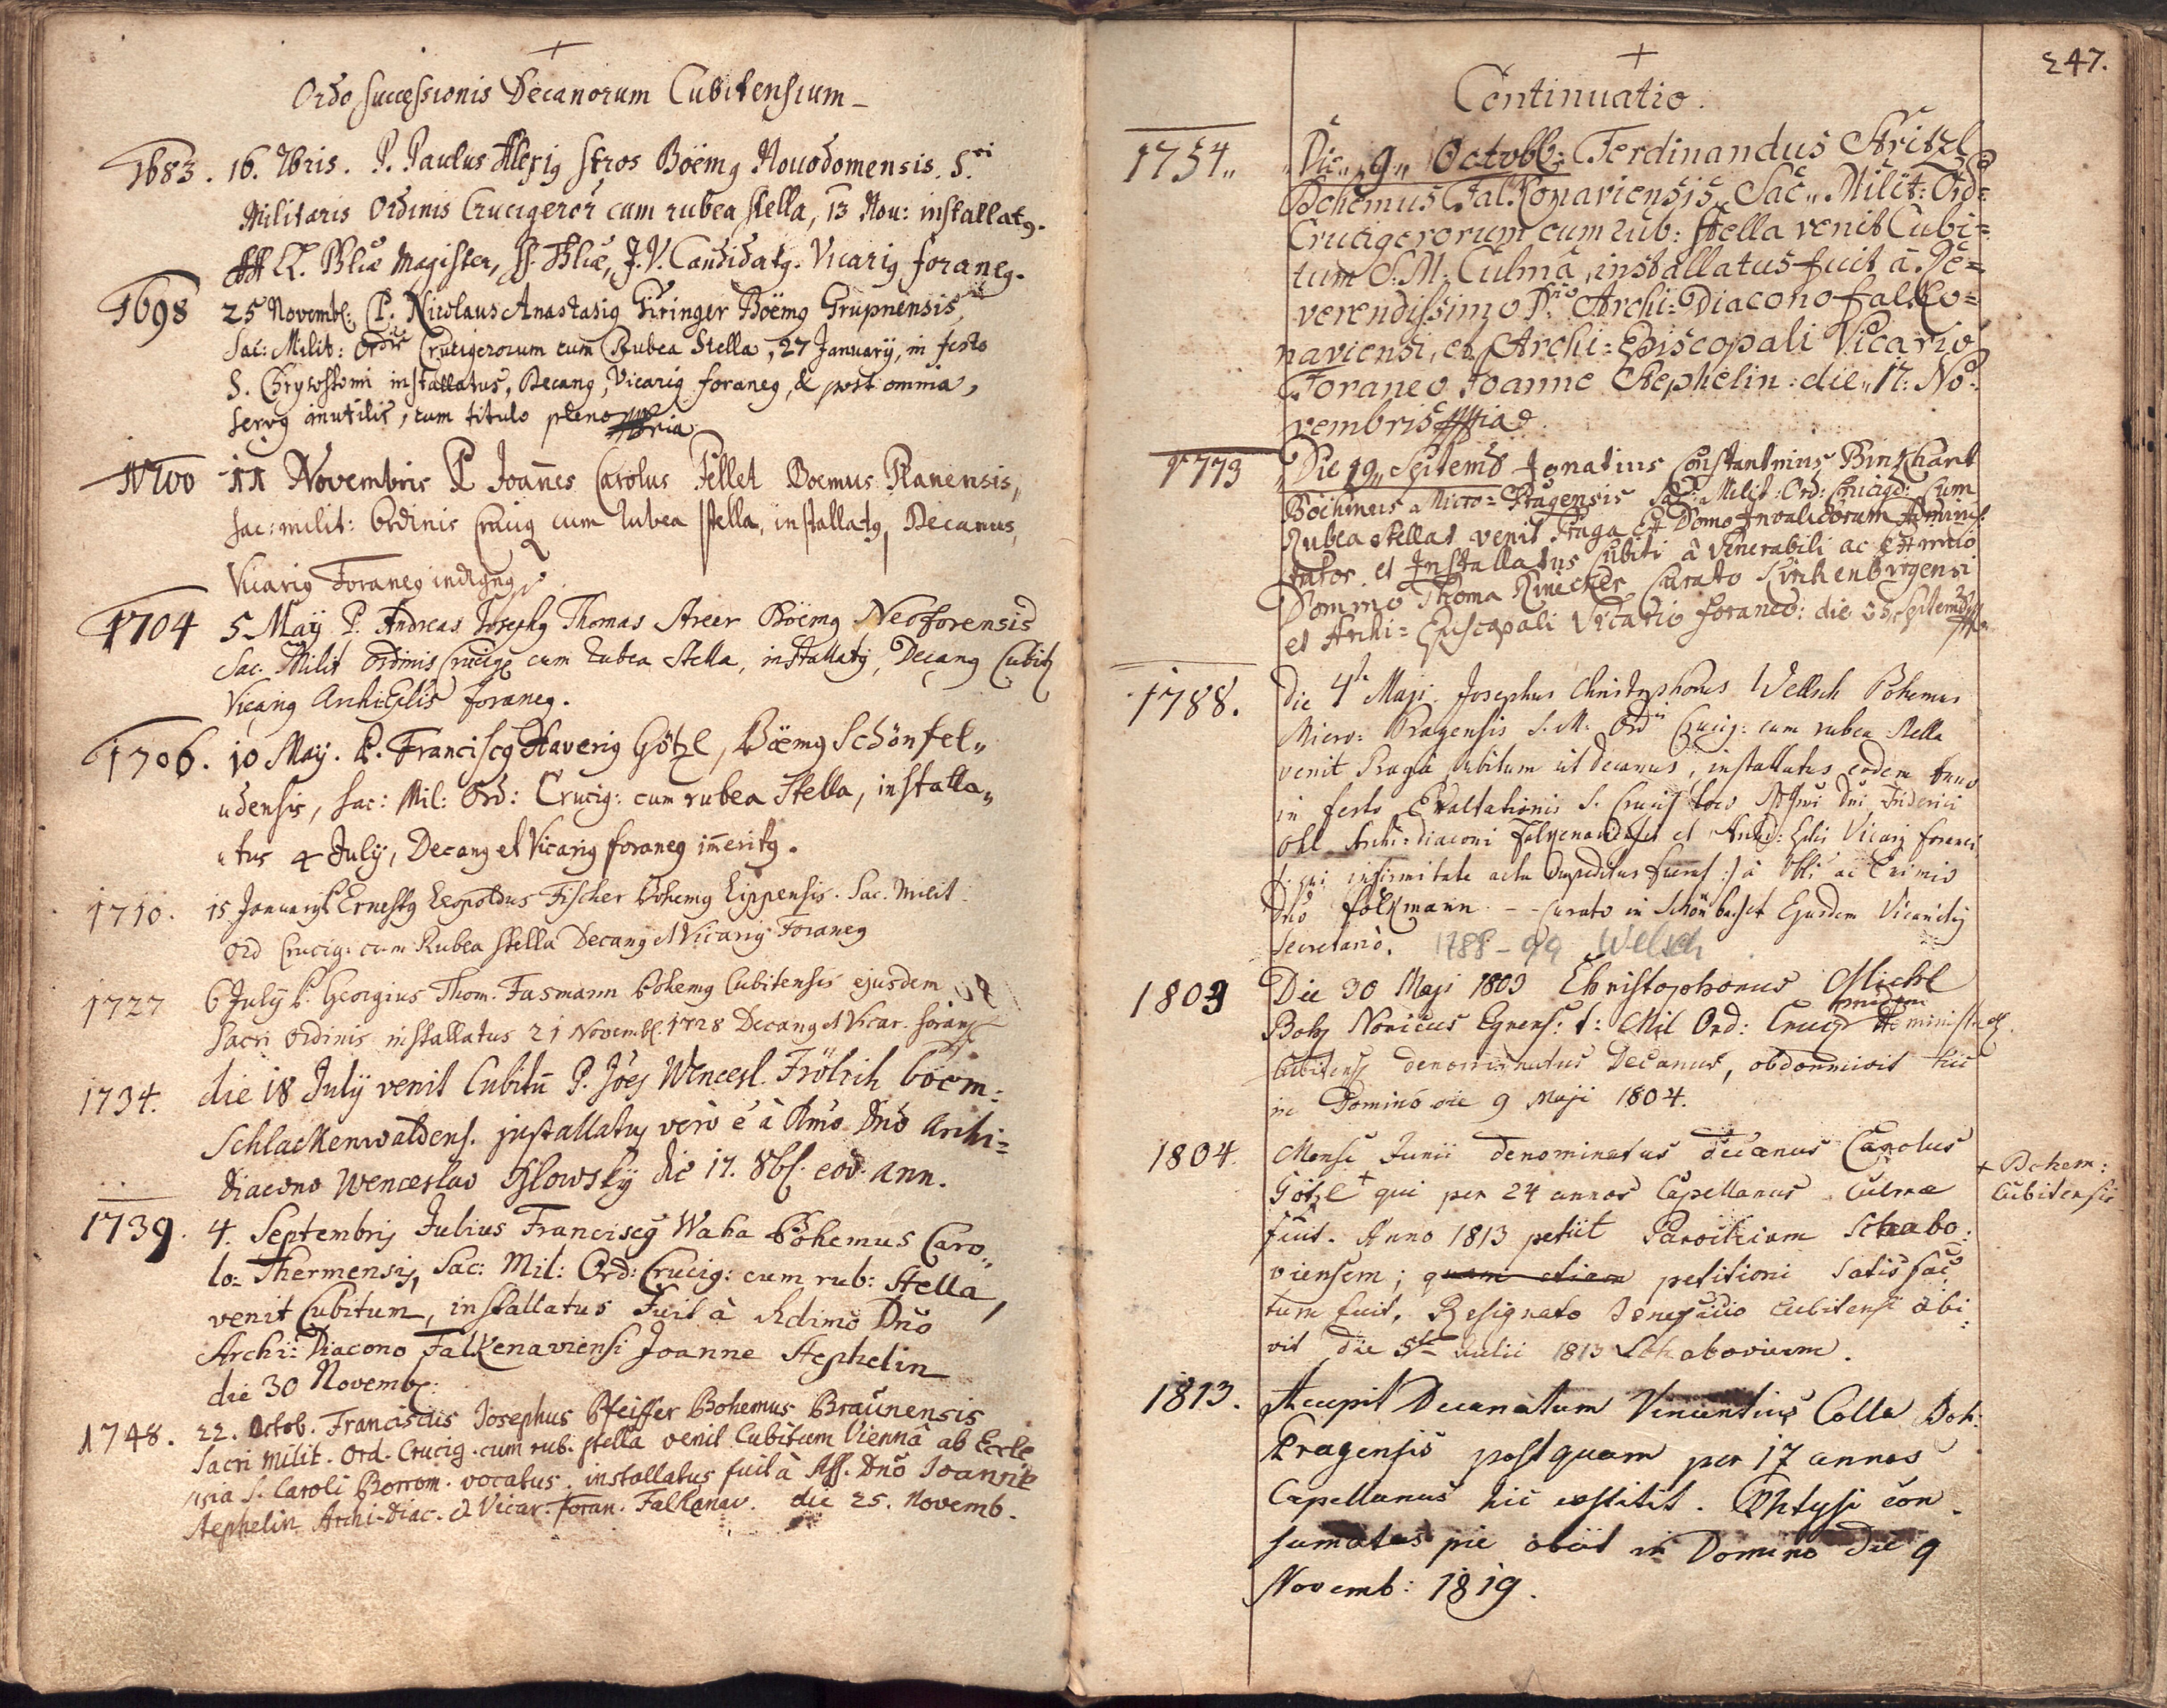 +
Ordo successionis Decanorum Cubitensium
1683. 16. 7bris. P. Paulus Alexig Stros Böemg Novodomensis. S.ri
Militaris Ordinis Crucigeror cum rubea stella, 13 Nov: installatg.
LL. Bliæ Magister, Candidatg. Vicarig foraneg.
1698 25 Novemb: P. Nicolaus Anastasig Böemg Grupnensis,
Sac: Milit: Ordis Crucigerorum cum Rubea Stella, 27 January, in festo
S. Chrysostomi installatus, Decang, Vicarig foraneg, & post omnia,
servg inutilis, cum titulo pleno
1700 11 Novembris P. Joannes Carolus Pellet Boemus Planensis,
sac: milit: Ordinis Crucig cum rubea stella, installatg, Decanus,
Vicarig Foraneg indigng
1704 5 Maÿ P. Andreas Josephg Thomas Streer Böemg Neoforensis
Sac. Milit Ordinis Crucig cum rubea Stella, installatg, Decang Cubit
Vicarig foraneg.
1706. 10 Maÿ. P. Franciscg Xaverig Götzl, Böemg Schönfel„
udensis, sac: Mil: Ord: Crucig: cum rubea Stella, installa„
utus 4 July, Decang et Vicarig foraneg imeritg.
1710. 15 January P. Ernestg Leopoldus Fischer Bohemg Lippensis. Sac. Milit
Ord Crucig: cum Rubea stella Decang et Vicarig Foraneg
1727 6 July P. Georgius Thom. Fasmann Bohemg Cubitensis ejusdem
Sacri Ordinis installatus 21 Novemb. 1728 Decang et Vicar. foran
1734. die 18 Julÿ venit Cubitū P. Joes Wencesl. Frölich böem=
Schlackenwaldens. installatg verò è à Rmo Dnō Archi=
diacono Wenceslao die 17. 8b. eod. ann.
1739. 4. Septembris Julius Franciscg Waha Bohemus Caro„
lo=Thermensis, Sac: Mil: Ord: Crucig: cum rub: Stella,
venit Cubitum, installatus fuit à Rdimō Dnō
Archi: Diacono Falkenaviensi Joanne Stephelin
die 30 Novemb:
1748. 22. Octob. Franciscus Josephus Pfeiffer Bohemus Braunensis
Sacri milit. Ord. Crucig. cum rub. stella venit Cubitum Viennâ ab Eccle
sia S. Caroli Borrom. vocatus. installatus fuit à Dnō Joanne
Stephelin Archi-Diac. & Vicar. Foran. Falkanav. die 25. Novemb.
247.
+
Continuatio.
1754„ Die„ 9„ Octobb: Ferdinandus Stritzl
Bohemus Falkonaviensis Sac„ Milit: Ord=
Crucigerorum cum rub: stella venit Cubi=
tum S: M: Culmâ, installatus fuit à Re=
verendissimo Archi=Diacono falko=
naviensi, et Archi=Episcopali Vicario
Foraneo Joanne Stephelin: die„ 17: No=
vembris
1773 Die 19„ Septemb Ignatius Constantinus Binkhart
Böehmus Micro=Pragensis Sac: Milit: Ord: Crucig: cum
Rubea stella venit Praga Ex Domo Invalidorum Admini
trator et Installatus Cubiti à Venerabili ac
Domino Thoma Curato
et Archi=Episcopali Vicario foraneo: die
1788. Die 4ta Maji Josephus Christophorus Wellsch Bohemus
Micro=Pragensis S. M. Ord Crucig: cum rubea Stella
venit Pragâ Cubitum ut Decanus, installatus eodem anno
in festo Exaltationis S. Crucis loco Dni Friderici
Ohl Archi=diaconi et Vicarij foranei
qui infirmitate impeditus à ac Eximio
Dnō Folkmann -- Curato in Schönbach et Ejusdem Vicariatg
Secretariò. 1788-99 Welsch
1803 Die 30 Maji 1803 Christophorus Michl
Boh Noricus Egrens: S: Mil Ord: Crucig
Cubitens denominatus Decanus, obdormivit hic
in Domino die 9 Maji 1804.
1804. Mense Junii denominatus decanus Carolus
Götzl + qui per 24 annos Capellanus Culmæ
+ Bohem:
Cubitensis
fuit. Anno 1813 petiit Parochiam Schabo:
viensem; quam etiam petitioni satisfac
tum fuit. Resignato Beneficio Cubitensi abi
vit die 5te Julii 1813 Schabovium.
1813. Accepit Decanatum Vincentius Colle Boh:
Pragensis postquam per 17 annos
Capellanus hic exstitit. Phtysi con
sumatus pie obiit in Domino die 9
Novemb: 1819.